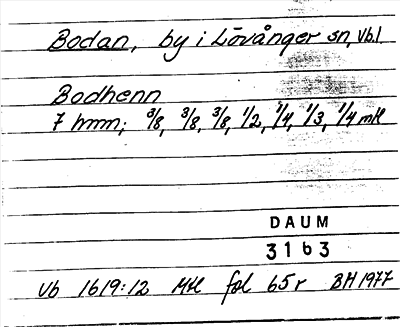 Bodan, by i Lövånger sn, Vb.l
Bodhenn
7 hmn; 3/8, 3/8, 3/8, 1/2, 1/4, 1/3, 1/4 mtl
DAUM
3163
Vb 1619:12 Mtl fol 65r BH 1977